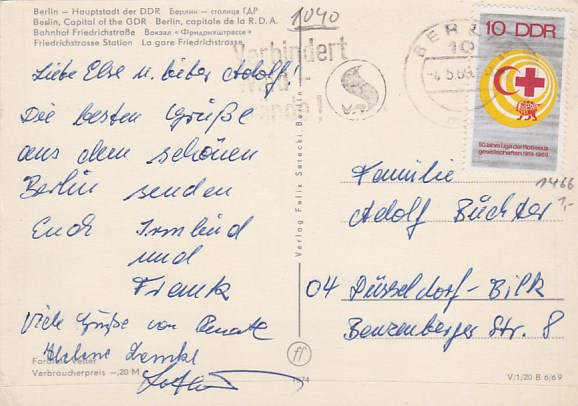 Berlin — Hauptstadt der DDR Берлин — столица ГДР
Berlin, Capital of the GDR Berlin, capitale de la R.D.A.
Bahnhof Friedrichstraße Вокзал «Фридрихштрассе»
Friedrichstrasse Station La gare Friedrichstrasse
1040
Verhindert
Wald-
brände!
BERLIN
-4.5.69
10 DDR
50 Jahre Liga der Rotkreuz-
gesellschaften, 1919-1969
1466
1,-
Liebe Else u. lieber Adolf!
Die besten Grüße
aus dem schönen
Berlin senden
Euch Irmlind
und
Frank
Viele Grüße von Renate
Helene
Familie
Adolf Büchter
04 Düsseldorf-Bilk
Benzenberger Str. 8
Verlag Felix Setecki, Berlin
Verbraucherpreis —,20 M
1674
V/1/20 B 6/69